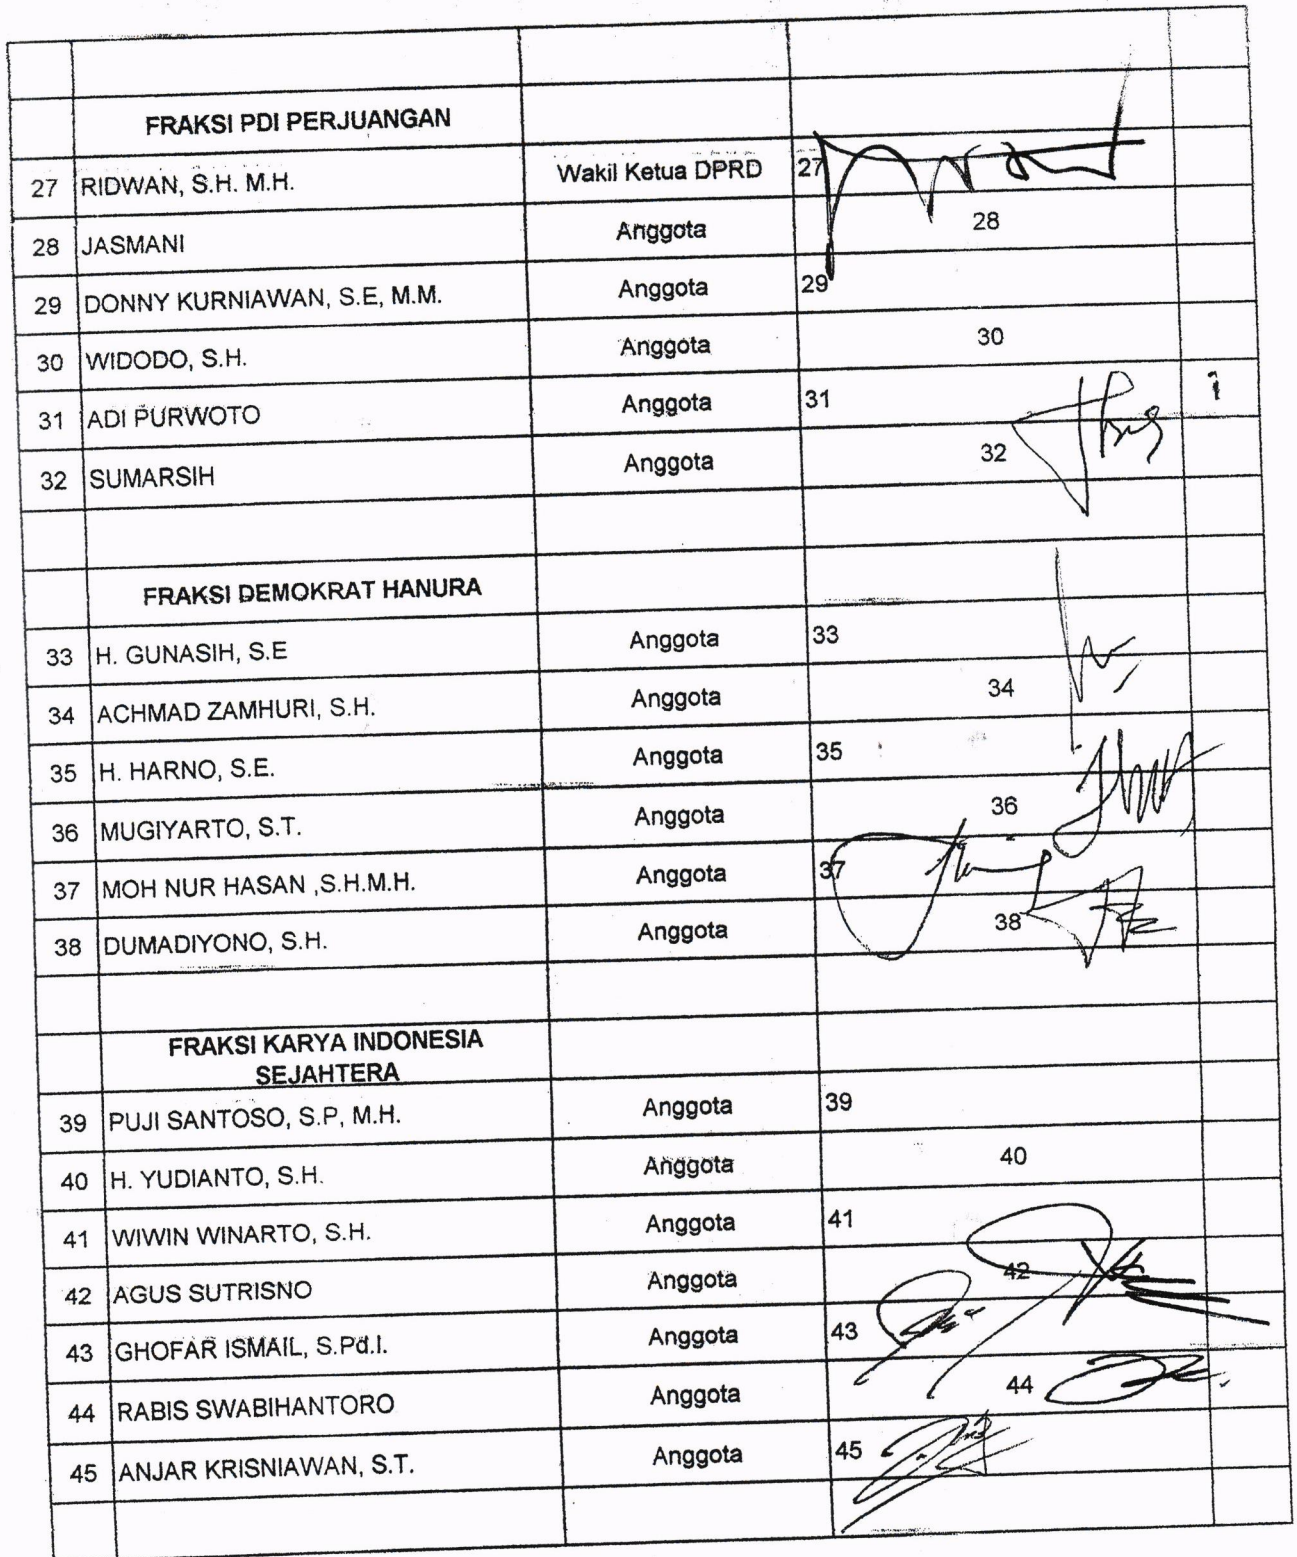 FRAKSI PDI PERJUANGAN
27 RIDWAN, S.H. M.H. Wakil Ketua DPRD 27
28 JASMANI Anggota 28
29 DONNY KURNIAWAN, S.E, M.M. Anggota 29
30 WIDODO, S.H. Anggota 30
31 ADI PURWOTO Anggota 31
32 SUMARSIH Anggota 32
FRAKSI DEMOKRAT HANURA
33 H. GUNASIH, S.E Anggota 33
34 ACHMAD ZAMHURI, S.H. Anggota 34
35 H. HARNO, S.E. Anggota 35
36 MUGIYARTO, S.T. Anggota 36
37 MOH NUR HASAN ,S.H.M.H. Anggota 37
38 DUMADIYONO, S.H. Anggota 38
FRAKSI KARYA INDONESIA
SEJAHTERA
39 PUJI SANTOSO, S.P, M.H. Anggota 39
40 H. YUDIANTO, S.H. Anggota 40
41 WIWIN WINARTO, S.H. Anggota 41
42 AGUS SUTRISNO Anggota 42
43 GHOFAR ISMAIL, S.Pd.I. Anggota 43
44 RABIS SWABIHANTORO Anggota 44
45 ANJAR KRISNIAWAN, S.T. Anggota 45